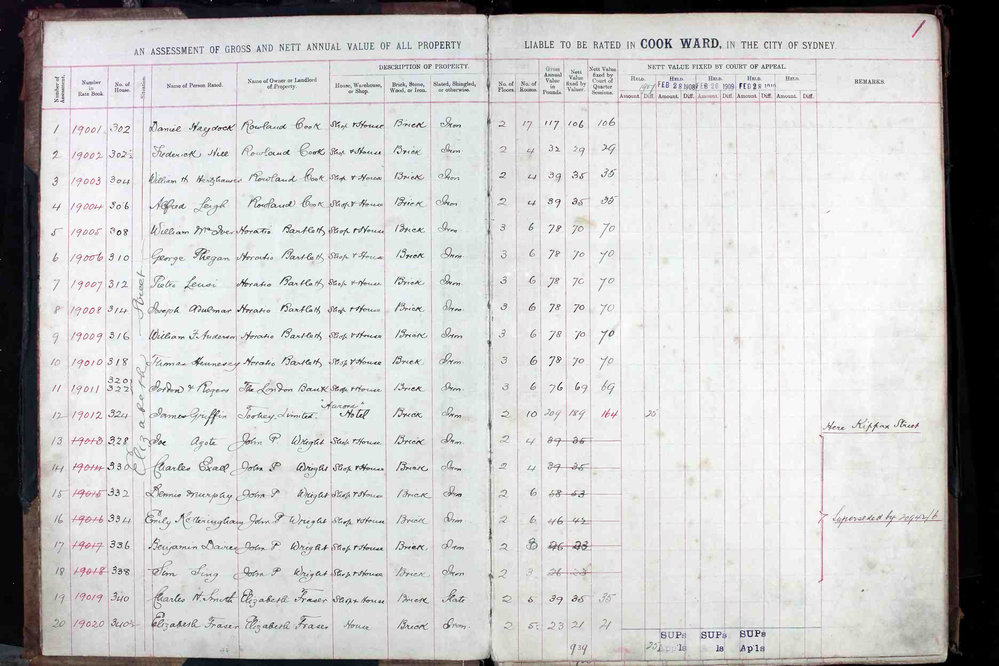 1
AN ASSESSMENT OF GROSS AND NETT ANNUAL VALUE OF ALL PROPERTY LIABLE TO BE RATED IN COOK WARD, IN THE CITY OF SYDNEY
DESCRIPTION OF PROPERTY. NETT VALUE FIXED BY COURT OF APPEAL.
Number of Assessment. Number in Rate Book No. of House. Situation Name of Person Rated. Name of Owner or Landlord of Property. House, Warehouse, or Shop. Brick, Stone, Wood, or Iron. Slated, Shingled, or otherwise. No. of Floors. No. of Rooms. Gross Annual Value in Pounds. Nett Value fixed by Valuer. Nett Value fixed by Court of Quarter Sessions. HELD. 1907 HELD. FEB 28 1908 HELD. FEB 26 1909 HELD. FEB 28 1910 REMARKS.
Amount. Diff. Amount. Diff. Amount. Diff. Amount. Diff.
Elizabeth Street
1 19001 302 Daniel Haydock Rowland Cook Shop & House Brick Iron 2 17 117 106 106
2 19002 302½ Frederick Hill Rowland Cook Shop & House Brick Iron 2 4 32 29 29
3 19003 304 William H Rowland Cook Shop & House Brick Iron 2 4 39 35 35
4 19004 306 Alfred Leigh Rowland Cook Shop & House Brick Iron 2 4 39 35 35
5 19005 308 William McIver Horatio Bartlett Shop & House Brick Iron 3 6 78 70 70
6 19006 310 George Phegan Horatio Bartlett Shop & House Brick Iron 3 6 78 70 70
7 19007 312 Pietro Horatio Bartlett Shop & House Brick Iron 3 6 78 70 70
8 19008 314 Joseph Horatio Bartlett Shop & House Brick Iron 3 6 78 70 70
9 19009 316 William J. Anderson Horatio Bartlett Shop & House Brick Iron 3 6 78 70 70
10 19010 318 Thomas Hennessy Horatio Bartlett Shop & House Brick Iron 3 6 78 70 70
11 19011 320/322 Gordon & Rogers The London Bank Shop & House Brick Iron 3 6 76 69 69
12 19012 324 James Griffin Toohey Limited "Aurora" Hotel Brick Iron 2 10 209 189 164 25
Here Kippax Street
13 19013 328 Joe Agote John P Wright Shop & House Brick Iron 2 4 39 35
14 19014 330 Charles Exall John P Wright Shop & House Brick Iron 2 4 39 35
15 19015 332 Dennis Murphy John P Wright Shop & House Brick Iron 2 6 58 53
16 19016 334 Emily John P Wright Shop & House Brick Iron 2 6 46 42 Superseded by
17 19017 336 Benjamin Davies John P Wright Shop & House Brick Iron 2 3 26 23
18 19018 338 Sun Sing John P Wright Shop & House Brick Iron 2 3 26 23
19 19019 340 Charles H. Smith Elizabeth Fraser Shop & House Brick Slate 2 5 39 35 35
20 19020 340½ Elizabeth Fraser Elizabeth Fraser House Brick Iron 2 5 23 21 21
939 25 SUPs SUPs SUPs
Apls ls Apls